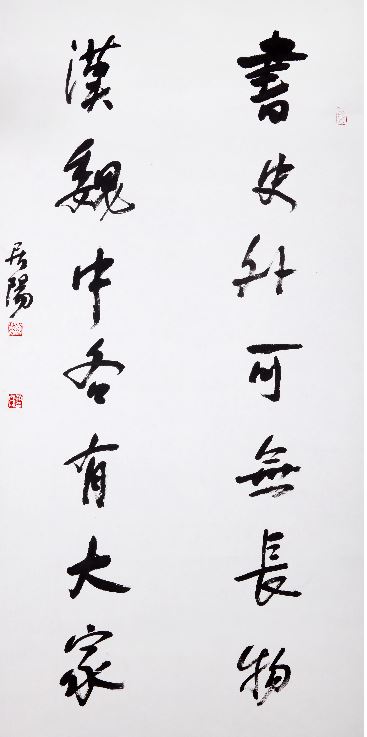 書史外可無長物
漢魏中各有大家
居陽